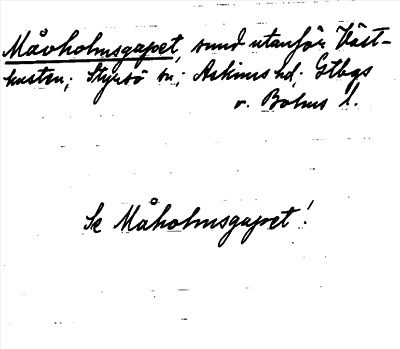 Måvholmsgapet, sund utanför Väst-
kusten; Styrsö sn; Askims hd; Gtbgs
o. Bohus l.
Se Måholmsgapet!